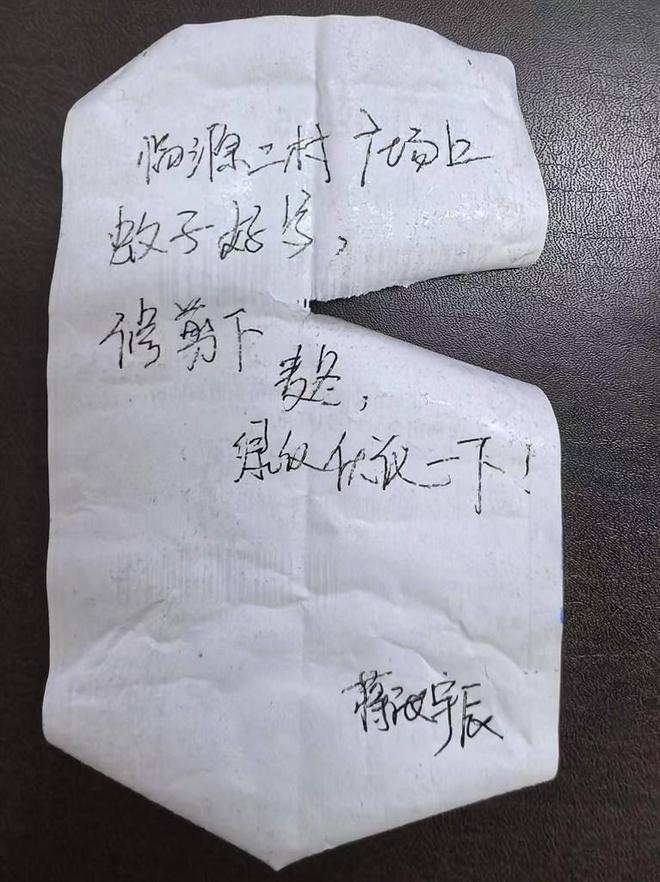 临源二村广场上
蚊子好多,
修剪下
麦冬,
绿化优化一下!
蒋汝宇辰